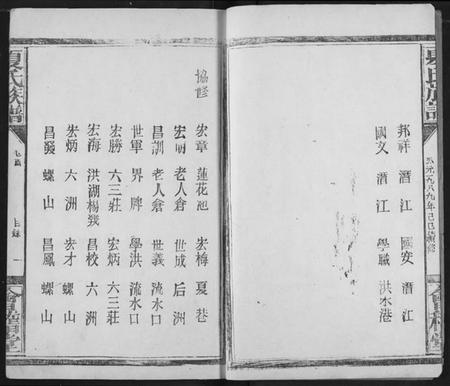 夏氏族譜
公元一九八九年己巳續修
會稽堂
邦祥 潛江 國安 潛江
國文 潛江 學職 洪水港
協修
宏章 蓮花池 宏梅 夏巷
宏明 老人倉 世成 后洲
昌訓 老人倉 世義 流水口
世軍 界牌 學洪 流水口
宏勝 六三莊 宏炳 六三莊
宏海 洪湖楊發 昌校 六洲
宏炳 六洲 宏才 螺山
昌發 螺山 昌鳳 螺山
夏氏族譜
目錄 一
會稽堂